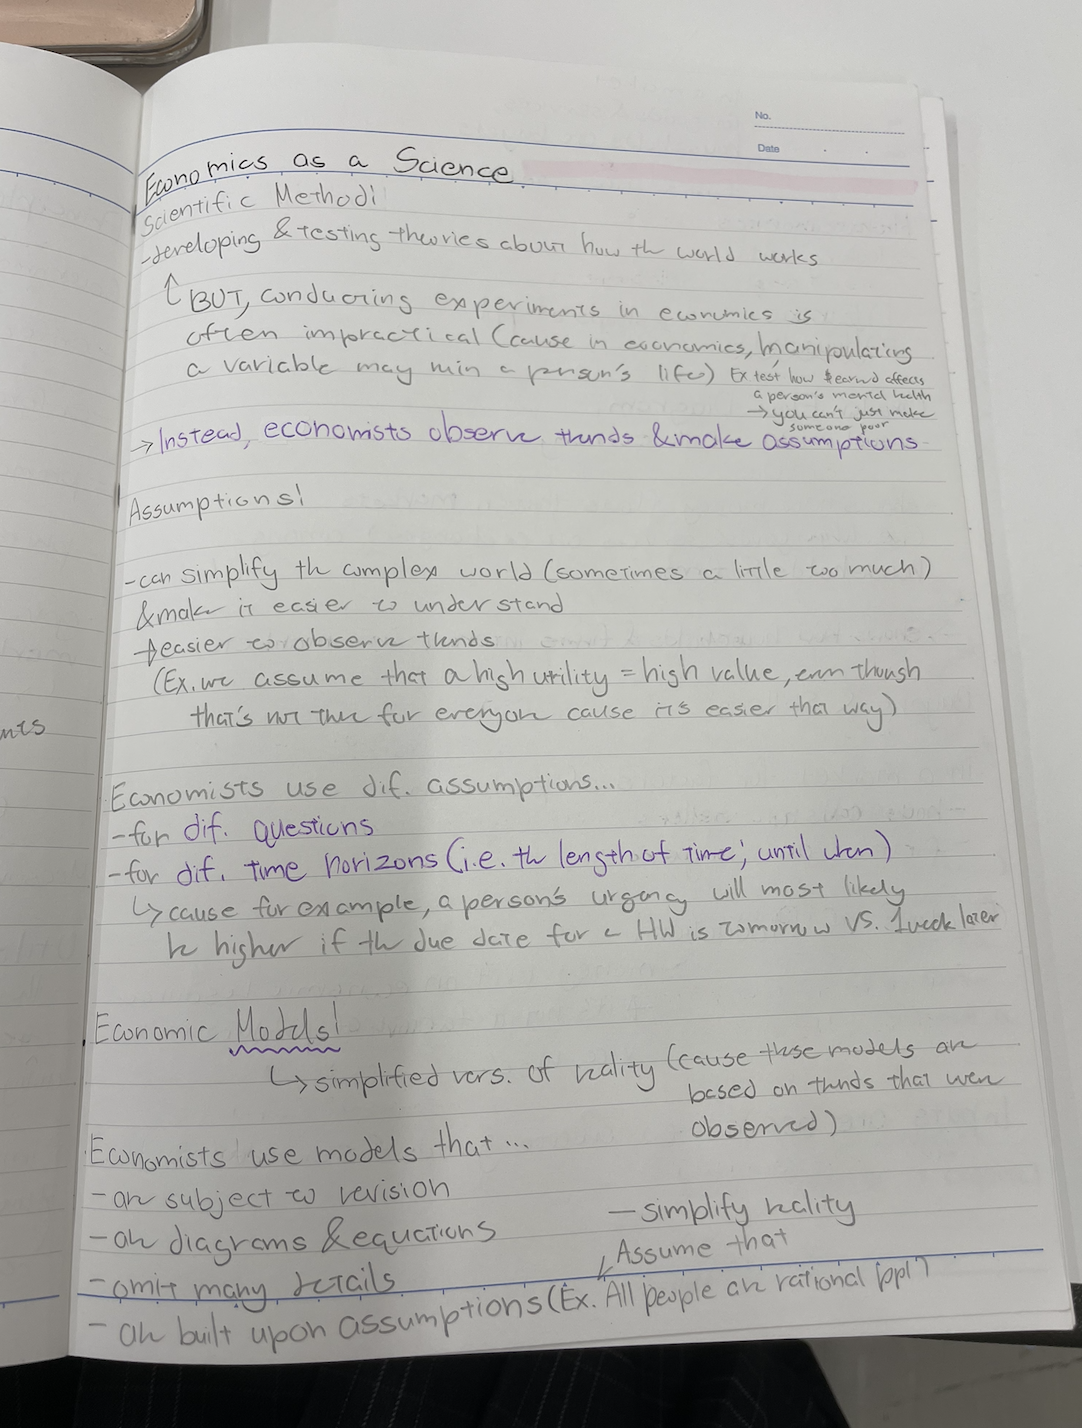 No.
Date
Economics as a Science
Scientific Method:
-developing & testing theories about how the world works
↑ BUT, conducting experiments in economics is
often impractical (cause in economics, manipulating
a variable may ruin a person's life) Ex test how $ earned affects
a person's mental health
→ you can't just make
someone poor
→ Instead, economists observe trends & make assumptions
Assumptions!
-can simplify the complex world (sometimes a little too much)
& make it easier to understand
→ easier to observe trends
(Ex. we assume that a high utility = high value, even though
that's not true for everyone cause its easier that way)
nts
Economists use dif. assumptions...
-for dif. questions
-for dif. time horizons (i.e. the length of time; until when)
↳ cause for example, a person's urgency will most likely
be higher if the due date for a HW is tomorrow VS. 1 week later
Economic Models!
↳ simplified vers. of reality (cause these models are
based on trends that were
observed)
Economists use models that ...
- are subject to revision
- are diagrams & equations
- simplify reality
- omit many details
Assume that
- are built upon assumptions (Ex. All people are rational ppl)